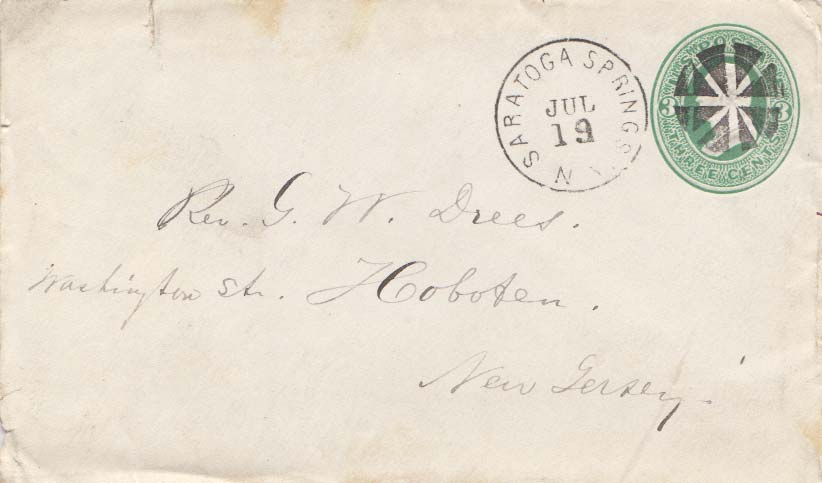 SARATOGA SPRINGS N
JUL
19
U.S. POSTAGE
3 3
THREE CENTS
Rev. G. W. Drees.
Washington Str. Hoboken.
New Jersey.